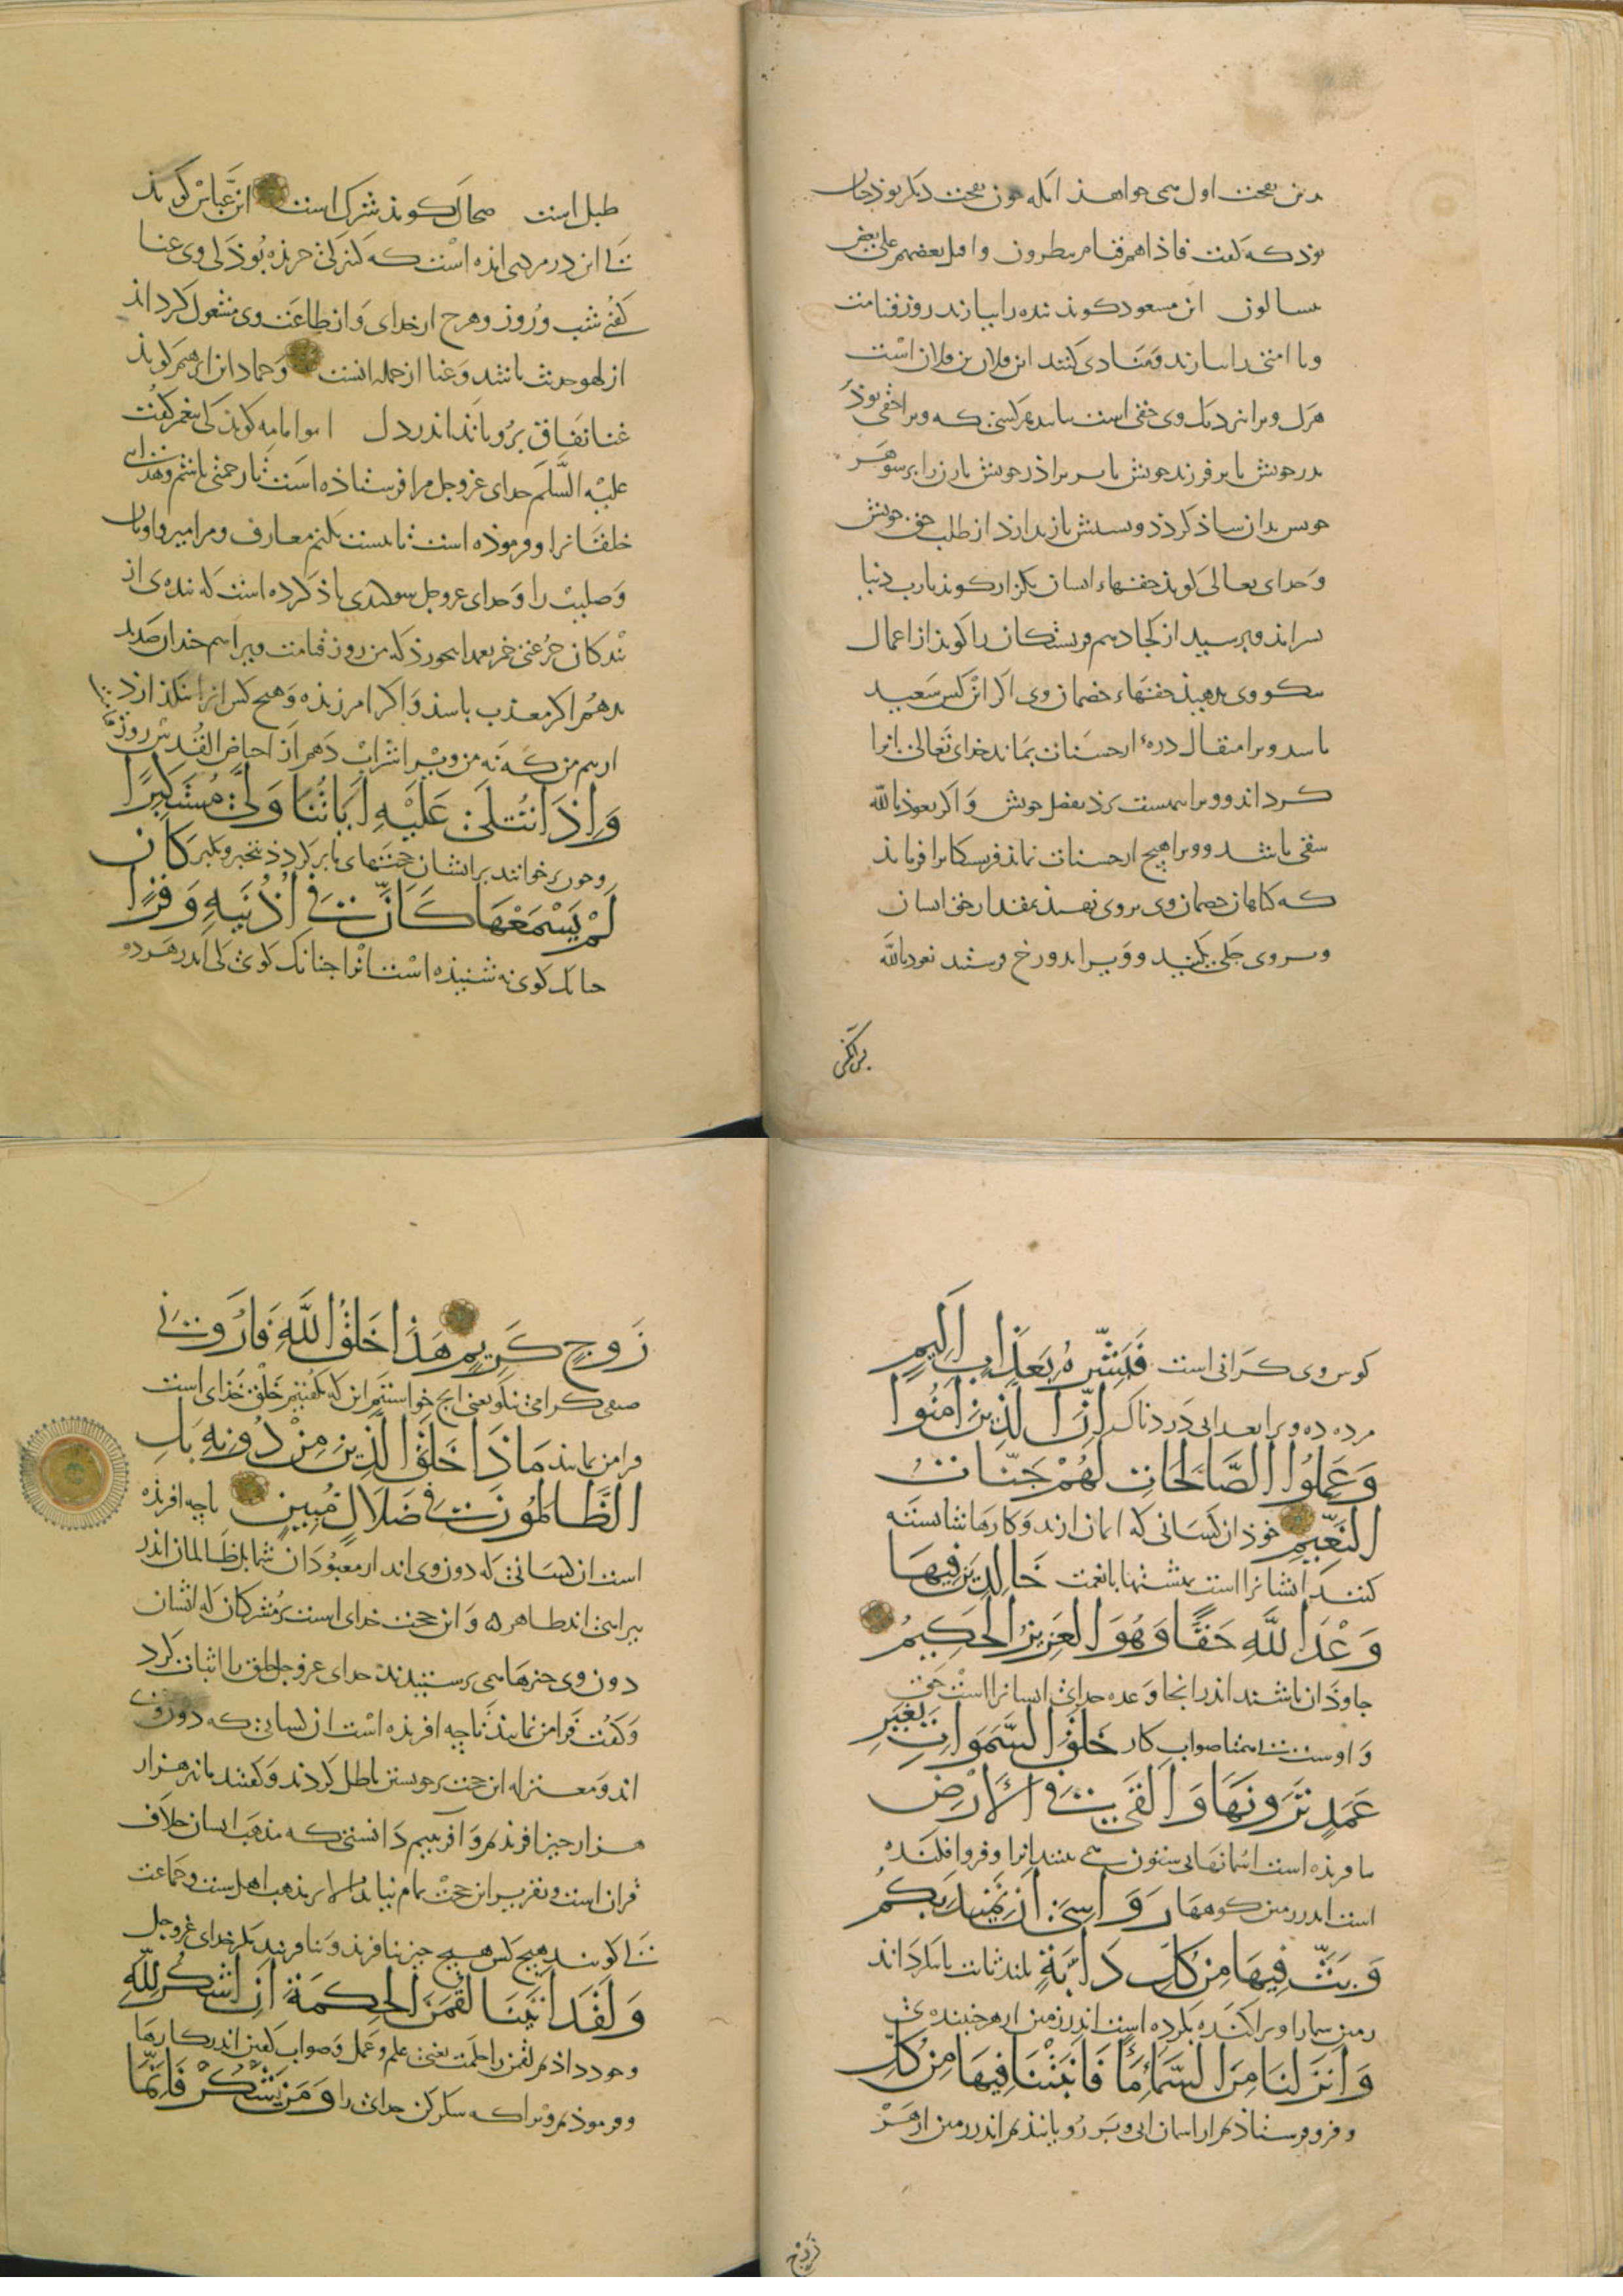 بدین نفخت اول می خواهد آنکه چون نفخت دیکر بوذ جنان
بوذ که کفت فاذا هم قیام ینظرون و اقبل بعضهم علی بعض
یتسالون ابن مسعود کوید بنده را بیارند روز قیامت
و منادی کنند این فلان بن فلان است
هرک ویرا نزدیک وی حقی است بیاید هر کسی که ویرا حقی بوذ
بر پدر خویش یا بر فرزند خویش یا بر براذر خویش یا زن را بر شوهر
خویش بدان شاذ کردذ و باز ندارذ از طلب حق خویش
و خدای تعالی کوید حقهاء ایشان بکزار کوید یا رب دنیا
از کجا دهم فریشتکان را کوید از اعمال
نیکو وی بدهید حقهاء خصمان وی اکر این کس سعید
باشد ویرا مثقال ذرهٔ از حسنات بماند خدای تعالی آنرا
کرداند و ویرا ببهشت برذ بفضل خویش و اکر نعوذ بالله
شقی باشد و ویرا هیچ از حسنات نماند فریشتکانرا فرماید
که کناهان خصمان وی بر وی نهید بمقدار حق ایشان
و بر وی و ویرا بدوزخ فرستید نعوذ بالله
طبل است ضحاک کوید شرک است ابن عباس کوید
این در مردی آمده است که کنیزکی خریذه بوذ کی وی غنا
کفتی شب و روز و هرچ از خدای و از طاعت وی مشغول کرداند
از لهو حدیث باشد و غنا از جمله آنست و حماد از ابرهیم کوید
غنا نفاق برویاند اندر دل ابو امامه کوید کی بیغمبر کفت
علیه السلم خدای عزوجل مرا فرستاذه است تا رحمتی باشم و هدایی
خلقانرا و فرموذه است تا نیست بکنم معازف و مزامیر و اوثان
و صلیب را و خدای عزوجل سوکندی یاذ کرده است که بنده ی از
بندکان من روز قیامت ویرا
بدهم اکر معذب باشد و اکر آمرزیذه و هیچ کس آنرا بنکذارد
از بیم من که نه من ویرا شراب دهم از حیاض القدس روز
وَإِذَا تُتْلَى عَلَيْهِ آيَاتُنَا وَلَّى مُسْتَكْبِرًا
و جون برخوانند بر ایشان حجتهای ما برکردذ بتجبر و تکبر كَأَن
لَمْ يَسْمَعْهَا كَأَنَّ فِي أُذُنَيْهِ وَقْرًا
جنانک کوی نه شنیذه است آنرا جنانک کوی کی اندر هر دو
کوش وی کرانی است فَبَشِّرْهُ بِعَذَابٍ أَلِيمٍ
مژده ده ویرا بعذابی دردناک إِنَّ الَّذِينَ آمَنُوا
وَعَمِلُوا الصَّالِحَاتِ لَهُمْ جَنَّاتُ
النَّعِيمِ خوذ آن کسانی که ایمان آرند و کارها شایسته
کنند ایشانرا است بهشتها با نعمت خَالِدِينَ فِيهَا
وَعْدَ اللَّهِ حَقًّا وَهُوَ الْعَزِيزُ الْحَكِيمُ
جاوذان باشند اندر آنجا وعده خدای ایشانرا است حق
و اوست بی همتا صواب کار خَلَقَ السَّمَوَاتِ بِغَيْرِ
عَمَدٍ تَرَوْنَهَا وَأَلْقَى فِي الْأَرْضِ
بیافریذه است آسمانها بی ستون می بینید آنرا و فرو افکنده
است اندر زمین کوهها رَوَاسِيَ أَنْ تَمِيدَ بِكُمْ
وَبَثَّ فِيهَا مِنْ كُلِّ دَابَّةٍ بلند ثابت تا بنکرداند
زمین شما را و پراکنده بکرده است اندر زمین از هر جنبنده ی
وَأَنْزَلْنَا مِنَ السَّمَاءِ مَاءً فَأَنْبَتْنَا فِيهَا مِنْ كُلِّ
و فرو فرستاذیم از آسمان آبی و برویانیذیم اندر زمین از هر
زَوْجٍ كَرِيمٍ هَذَا خَلْقُ اللَّهِ فَأَرُونِي
صنفی کرامی نیکو یعنی این که بکفتیم خلق خدای است
فرا من نمایید مَاذَا خَلَقَ الَّذِينَ مِنْ دُونِهِ بَلِ
الظَّالِمُونَ فِي ضَلَالٍ مُبِينٍ تا چه آفریذه
است آن کسانی که دون وی اند از معبودان شما بلک ظالمان اندر
بی راهی اند ظاهر و این حجت خدای است بر مشرکان که ایشان
دون وی چیزها می پرستیدند خدای عزوجل
و کفت فرا من نمایید تا چه آفریذه است آن کسانی که دون وی
اند و معتزله این حجت بر خویشتن باطل کردند و کفتند ما نیز هزار
هزار چیز آفریذیم و آفرینیم دانستی که مذهب ایشان خلاف
قران است و تقریر این حجت تمام نیاید الا بر مذهب اهل سنت و جماعت
کی کویند هیچ کس هیچ چیز نیافریذ و نیافریند مکر خدای عزوجل
وَلَقَدْ آتَيْنَا لُقْمَنَ الْحِكْمَةَ أَنِ اشْكُرْ لِلَّهِ
و خوذ داذیم لقمن را حکمت یعنی علم و عمل و صواب کفتن اندر کارها
و فرموذیم ویرا که شکر کن خدای را وَمَنْ يَشْكُرْ فَإِنَّمَا